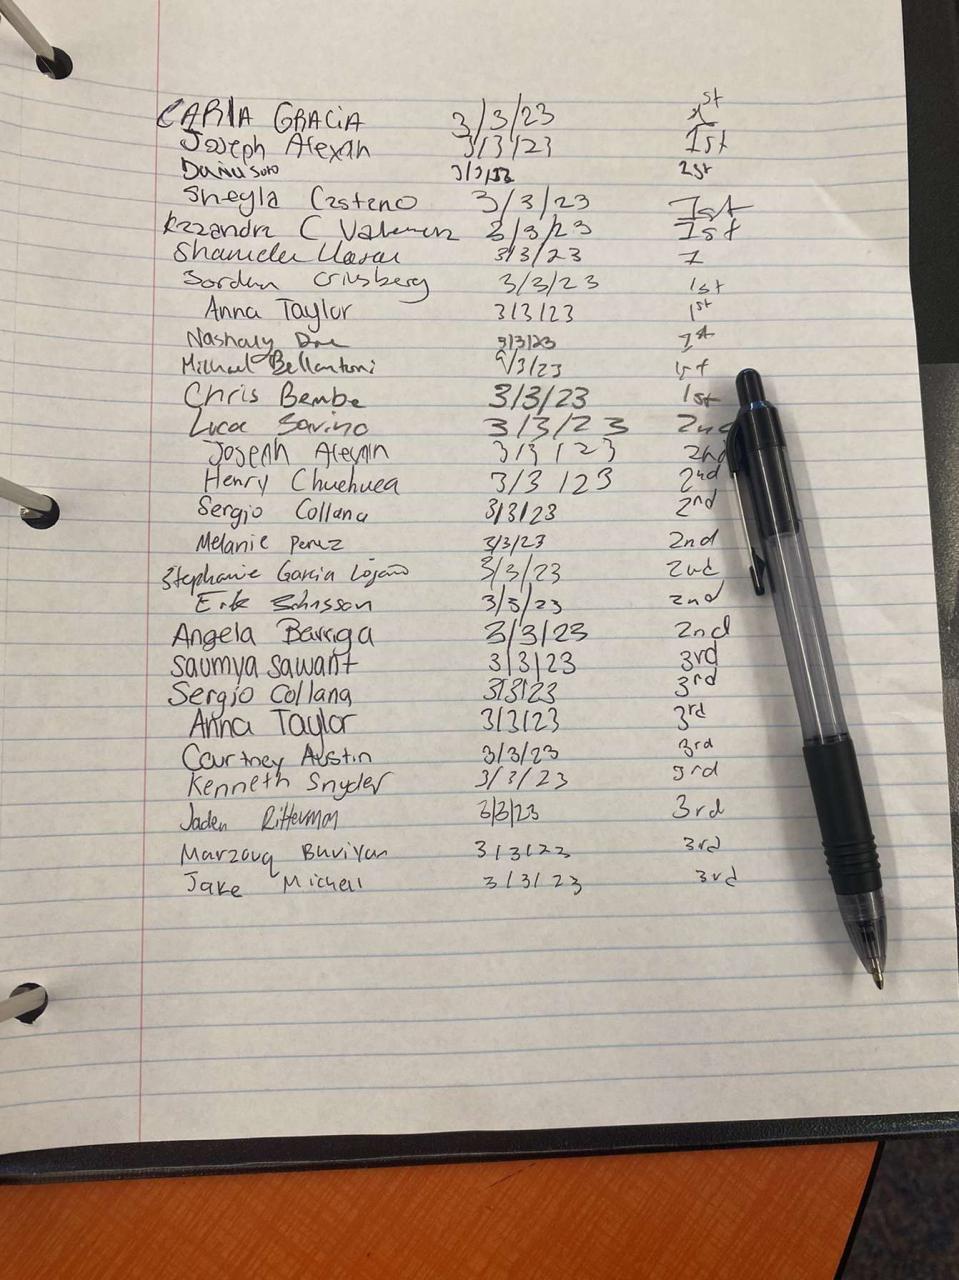 CARlA GRACiA 3/3/23 1st
Joseph 3/3/23 1st
Soto
Sheyla Casteno 3/3/23 1st
C 3/3/23 1st
3/3/23 1
Jordan 3/3/23 1st
Anna Taylor 3/3/23 1st
Nashaly 3/3/23 1st
Michael Bellantoni /3/23 1st
Chris Bembe 3/3/23 1st
Luca Savino 3/3/23 2nd
Joseph 3/3/23 2nd
Henry Chuehuea 3/3/23 2nd
Sergio Collana 3/3/23 2nd
Melanie Perez 3/3/23 2nd
Stephanie Garcia Lojano 3/3/23 2nd
Erik 3/3/23 2nd
Angela Barriga 3/3/23 2nd
Saumya Sawant 3/3/23 3rd
Sergio Collana 3/3/23 3rd
Anna Taylor 3/3/23 3rd
Courtney Austin 3/3/23 3rd
Kenneth Snyder 3/3/23 3rd
Jaden Ritterman 3/3/23 3rd
Marzouq 3/3/23 3rd
Jake 3/3/23 3rd